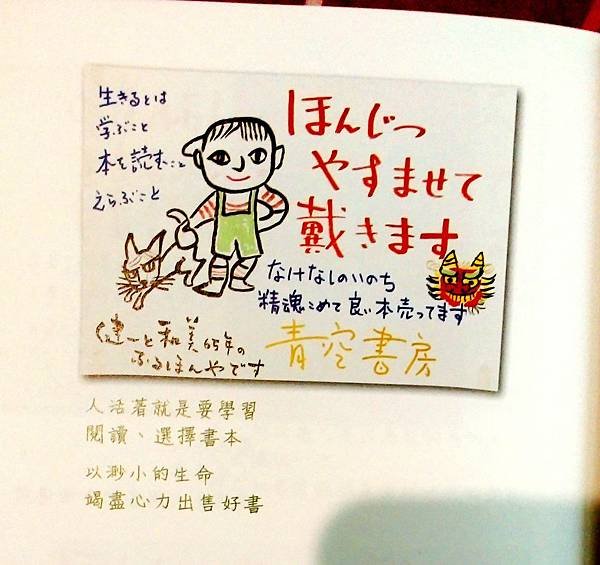 生きるとは
学ぶこと
本を読むこと
えらぶこと
ほんじつ
やすませて
戴きます
なけなしのいのち
精魂こめて良い本売ってます
健一と和美65年の
ふるほんやです
青空書房
人活著就是要學習
閱讀、選擇書本
以渺小的生命
竭盡心力出售好書